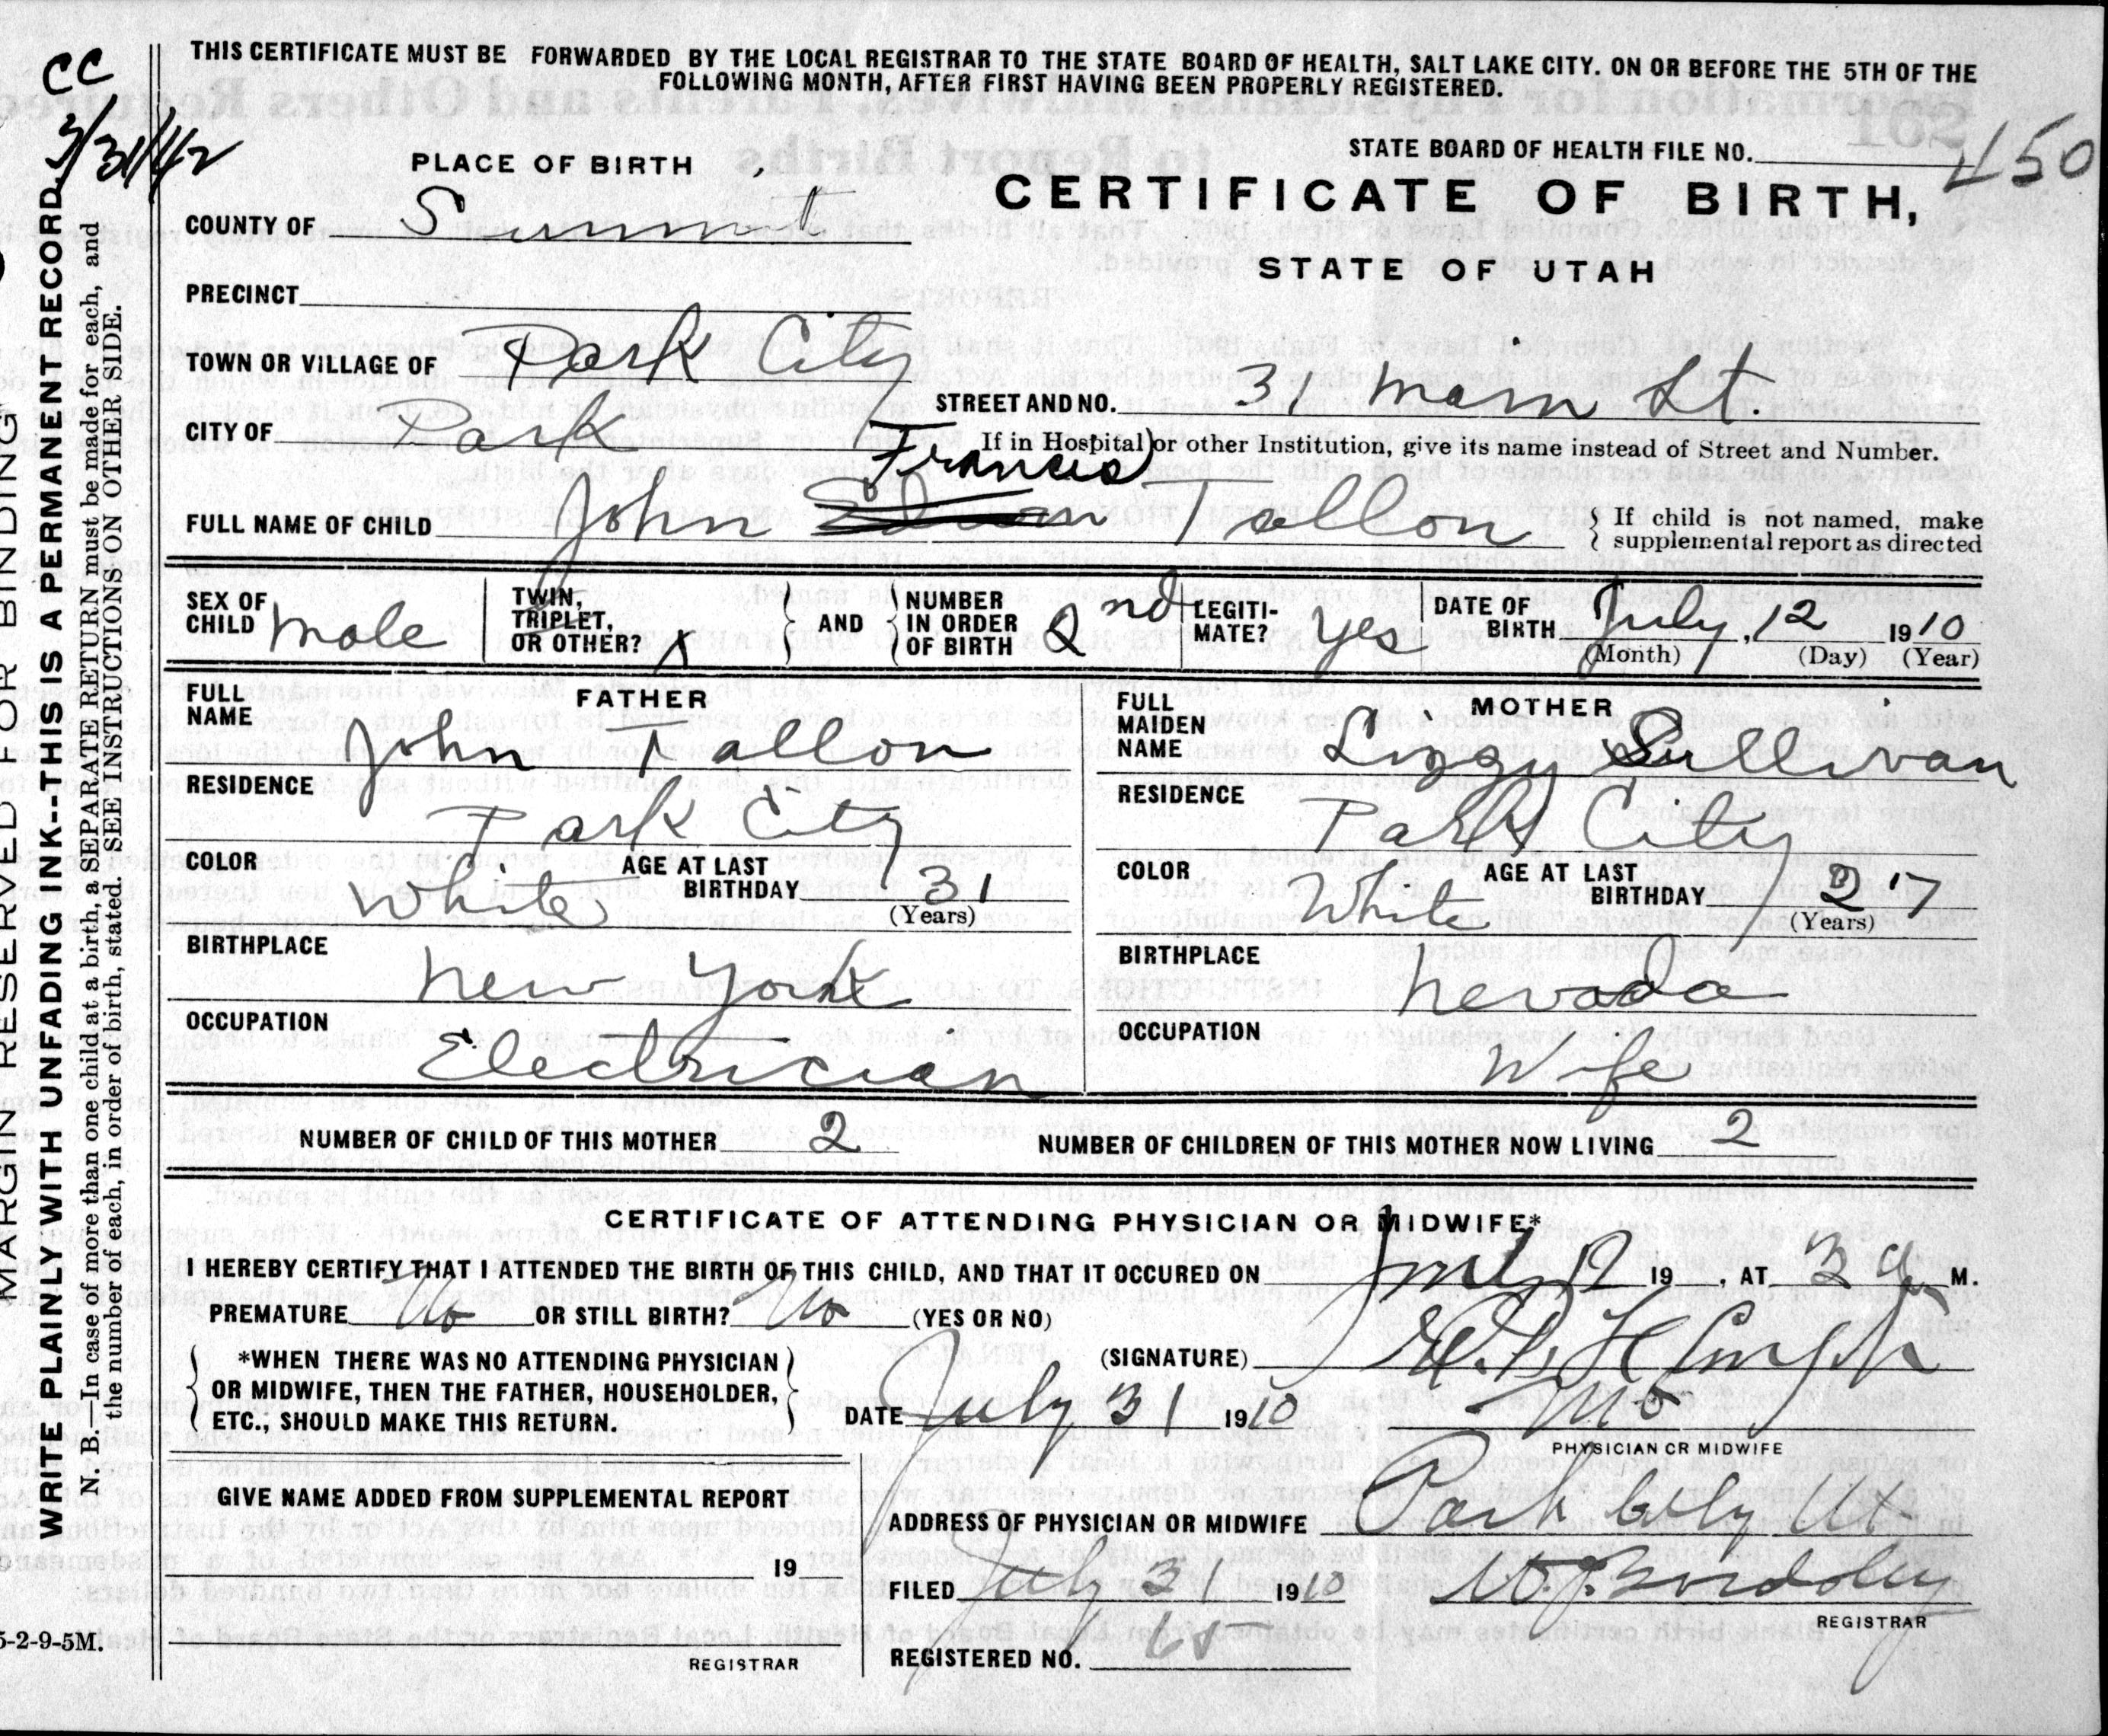 THIS CERTIFICATE MUST BE FORWARDED BY THE LOCAL REGISTRAR TO THE STATE BOARD OF HEALTH, SALT LAKE CITY. ON OR BEFORE THE 5TH OF THE
FOLLOWING MONTH, AFTER FIRST HAVING BEEN PROPERLY REGISTERED.
CC
3/31/42
STATE BOARD OF HEALTH FILE NO. 450
PLACE OF BIRTH
CERTIFICATE OF BIRTH,
STATE OF UTAH
COUNTY OF Summit
PRECINCT
TOWN OR VILLAGE OF Park City
STREET AND NO. 31 Main St.
CITY OF Park
If in Hospital or other Institution, give its name instead of Street and Number.
Francis
FULL NAME OF CHILD John Tallon
If child is not named, make
supplemental report as directed
SEX OF CHILD Male
TWIN, TRIPLET, OR OTHER?
AND
NUMBER IN ORDER OF BIRTH 2nd
LEGITI-MATE? Yes
DATE OF BIRTH July, 12 1910
(Month) (Day) (Year)
FATHER
FULL NAME John Tallon
RESIDENCE
Park City
COLOR White
AGE AT LAST BIRTHDAY 31
(Years)
BIRTHPLACE
New York
OCCUPATION
Electrician
MOTHER
FULL MAIDEN NAME Lizzy Sullivan
RESIDENCE
Park City
COLOR White
AGE AT LAST BIRTHDAY 27
(Years)
BIRTHPLACE
Nevada
OCCUPATION
Wife
NUMBER OF CHILD OF THIS MOTHER 2
NUMBER OF CHILDREN OF THIS MOTHER NOW LIVING 2
CERTIFICATE OF ATTENDING PHYSICIAN OR MIDWIFE*
I HEREBY CERTIFY THAT I ATTENDED THE BIRTH OF THIS CHILD, AND THAT IT OCCURED ON July 12 19 , AT 3 M.
PREMATURE No OR STILL BIRTH? No (YES OR NO)
*WHEN THERE WAS NO ATTENDING PHYSICIAN
OR MIDWIFE, THEN THE FATHER, HOUSEHOLDER,
ETC., SHOULD MAKE THIS RETURN.
(SIGNATURE)
DATE July 31 1910
PHYSICIAN OR MIDWIFE
GIVE NAME ADDED FROM SUPPLEMENTAL REPORT
19
REGISTRAR
ADDRESS OF PHYSICIAN OR MIDWIFE Park City Ut
FILED July 31 1910
REGISTRAR
REGISTERED NO. 65
MARGIN RESERVED FOR BINDING.
WRITE PLAINLY WITH UNFADING INK--THIS IS A PERMANENT RECORD.
N. B.—In case of more than one child at a birth, a SEPARATE RETURN must be made for each, and
the number of each, in order of birth, stated. SEE INSTRUCTIONS ON OTHER SIDE.
5-2-9-5M.